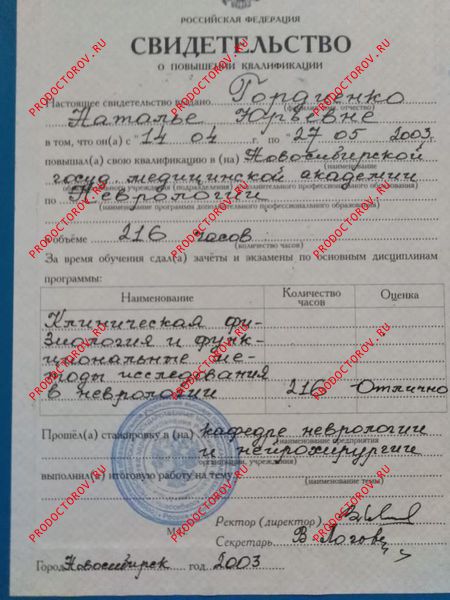 РОССИЙСКАЯ ФЕДЕРАЦИЯ
СВИДЕТЕЛЬСТВО
О ПОВЫШЕНИИ КВАЛИФИКАЦИИ
Настоящее свидетельство выдано Гордиенко
(фамилия, имя, отчество)
Наталье Юрьевне
в том, что он(а) с "14 04 по "27 05 2003
повышал(а) свою квалификацию в (на) Новосибирской
госуд медицинской академии
образовательного учреждения (подразделения) дополнительного профессионального образования)
по Неврологии
(наименование программы дополнительного профессионального образования)
в объёме 216 часов
(количество часов)
За время обучения сдал(а) зачёты и экзамены по основным дисциплинам
программы:
Наименование Количество часов Оценка
Клиническая фи-
зиология и функ-
циональные ме-
тоды исследования
в неврологии 216 Отлично
Прошёл(а) стажировку в (на) кафедре неврологии
(наименование предприятия
и нейрохирургии
организации, учреждения)
выполнил(а) итоговую работу на тему
(наименование темы)
М.П.
Ректор (директор)
Секретарь
Город Новосибирск год 2003
PRODOCTOROV.RU